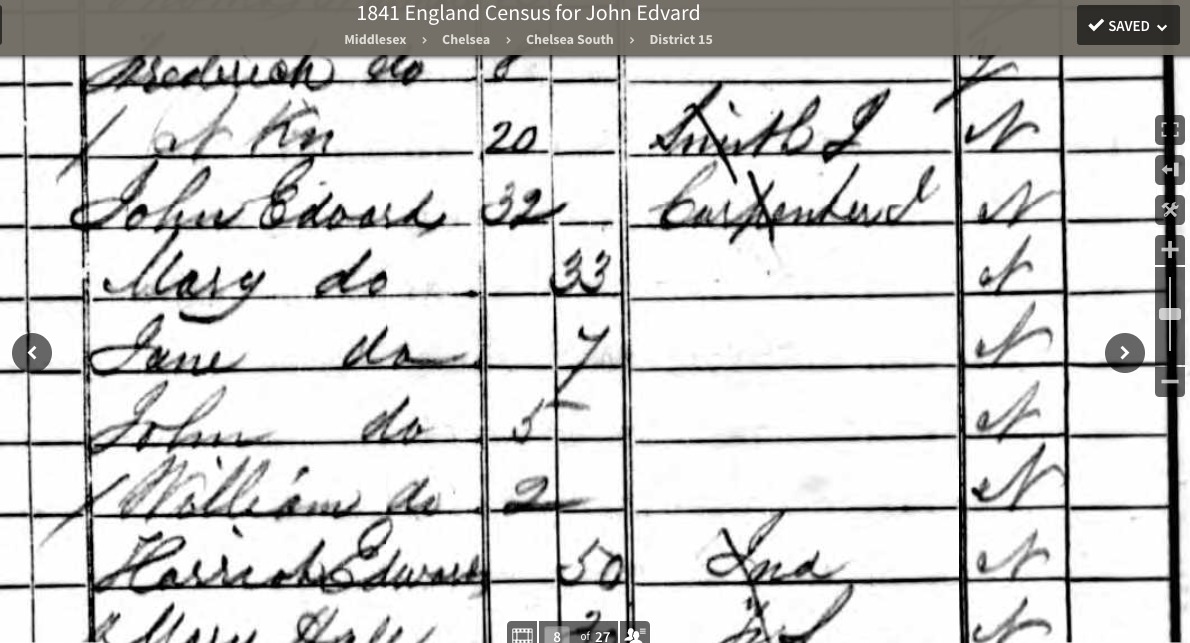 1841 England Census for John Edvard
Middlesex > Chelsea > Chelsea South > District 15
SAVED
Frederick do 8
20 Smith J N
John Edvard 32 Carpenter J N
Mary do 33 N
Jane do 7 N
John do 5 N
William do 2 N
Harriah Edward 50 Ind N
Mary
8 of 27